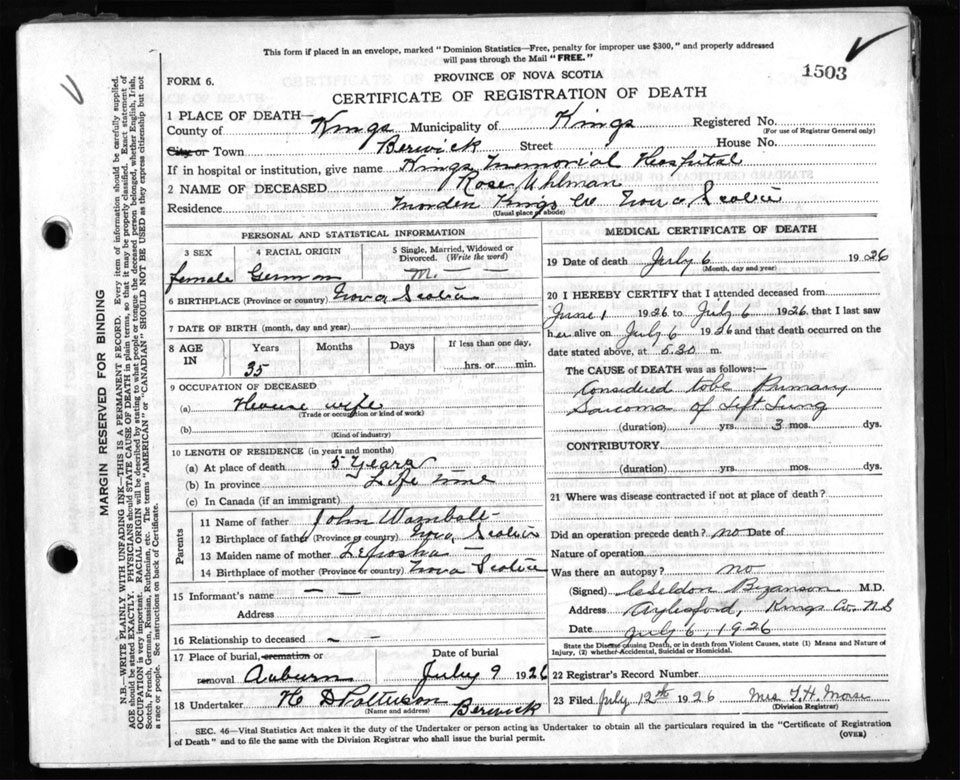 This form if placed in an envelope, marked "Dominion Statistics—Free, penalty for improper use $300," and properly addressed
will pass through the Mail "FREE."
1503
FORM 6.
PROVINCE OF NOVA SCOTIA
CERTIFICATE OF REGISTRATION OF DEATH
1 PLACE OF DEATH—
County of Kings Municipality of Kings Registered No.
(For use of Registrar General only)
City or Town Berwick Street House No.
If in hospital or institution, give name Kings Memorial Hospital
2 NAME OF DECEASED Rose Uhlman
Residence Morden Kings Co Nova Scotia
(Usual place of abode)
PERSONAL AND STATISTICAL INFORMATION
3 SEX 4 RACIAL ORIGIN 5 Single, Married, Widowed or
Divorced. (Write the word)
female German M. — —
6 BIRTHPLACE (Province or country) Nova Scotia
7 DATE OF BIRTH (month, day and year)
8 AGE IN Years Months Days If less than one day,
35 hrs. or min.
9 OCCUPATION OF DECEASED
(a) House wife
(Trade or occupation or kind of work)
(b)
(Kind of industry)
10 LENGTH OF RESIDENCE (in years and months)
(a) At place of death 5 Years
(b) In province Life time
(c) In Canada (if an immigrant)
Parents
11 Name of father John Wambolt
12 Birthplace of father (Province or country) Nova Scotia
13 Maiden name of mother —
14 Birthplace of mother (Province or country) Nova Scotia
15 Informant's name — —
Address
16 Relationship to deceased — —
17 Place of burial, cremation or Date of burial
removal Auburn July 9 1926
18 Undertaker H D Pattison Berwick
(Name and address)
MEDICAL CERTIFICATE OF DEATH
19 Date of death July 6 1926
(Month, day and year)
20 I HEREBY CERTIFY that I attended deceased from
June 1 1926 to July 6 1926, that I last saw
her alive on July 6 1926 and that death occurred on
date stated above, at 5.30 m.
The CAUSE of DEATH was as follows:—
Considered to be Primary
Sarcoma of Left Lung
(duration) yrs. 3 mos. dys.
CONTRIBUTORY
(duration) yrs. mos. dys.
21 Where was disease contracted if not at place of death?
Did an operation precede death? no Date of
Nature of operation
Was there an autopsy? no
(Signed) Bezanson M.D.
Address Aylesford, Kings Co. N.S
Date July 6, 1926
State the Disease causing Death, or in Death from Violent Causes, state (1) Means and Nature of
Injury, (2) whether Accidental, Suicidal or Homicidal.
22 Registrar's Record Number
23 Filed July 12th 1926 Mrs T. H. Morse
(Division Registrar)
SEC. 46—Vital Statistics Act makes it the duty of the Undertaker or person acting as Undertaker to obtain all the particulars required in the "Certificate of Registration
of Death" and to file the same with the Division Registrar who shall issue the burial permit.
(OVER)
MARGIN RESERVED FOR BINDING
N.B.—WRITE PLAINLY WITH UNFADING INK—THIS IS A PERMANENT RECORD. Every item of information should be carefully supplied.
AGE should be stated EXACTLY. PHYSICIANS should STATE CAUSE OF DEATH in plain terms, so that it may be properly classified. Exact statement of
OCCUPATION is very important. RACIAL ORIGIN will be described by stating to what people or tongue the deceased person belonged, whether English, Irish,
Scotch, French, German, Russian, Ruthenian, etc. The terms "AMERICAN" or "CANADIAN" SHOULD NOT BE USED as they express citizenship but not
a race or people. See instructions on back of Certificate.